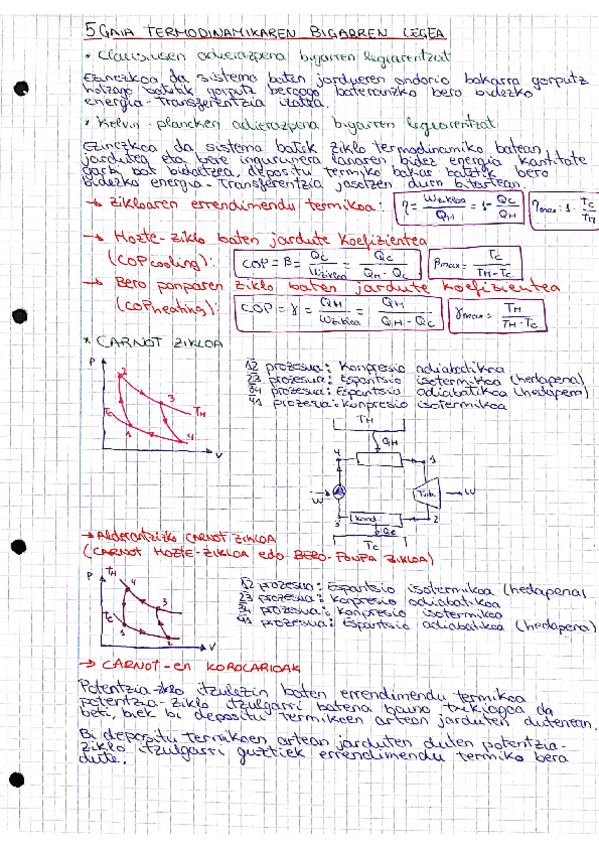 5 GAIA TERMODINAMIKAREN BIGARREN LEGEA
* Clausiusen adierazpena bigarren legearentzat
Ezinezkoa da sistema baten jardueren ondorio bakarra gorputz
hotzago batetik gorputz beroago bateranzko bero bidezko
energia-transferentzia izatea.
* Kelvin-plancken adierazpena bigarren legearentzat
Ezinezkoa da sistema batek ziklo termodinamiko batean
jardutea eta bere ingurunera lanaren bidez energia kantitate
garbi bat bidaltzea, depositu termiko bakar batetik bero
bidezko energia-transferentzia jasotzen duen bitartean.
→ zikloaren errendimendu termikoa: η = Wzikloa/QH = 1 - QC/QH ηmax = 1 - TC/TH
→ Hozte-ziklo baten jardute koefizientea
(COPcooling): COP = β = QC/Wzikloa = QC/(QH-QC) βmax = TC/(TH-TC)
→ Bero ponparen ziklo baten jardute koefizientea
(COPheating): COP = γ = QH/Wzikloa = QH/(QH-QC) γmax = TH/(TH-TC)
* CARNOT ZIKLOA
12 prozesua: Konpresio adiabatikoa
23 prozesua: Espantsio isotermikoa (hedapena)
34 prozesua: Espantsio adiabatikoa (hedapena)
41 prozesua: Konpresio isotermikoa
P 2 3 TH TC 1 4 V
TH
QH
4 1
W Turb. W
3 Kond. 2
QC
TC
→ Alderantzizko CARNOT ZIKLOA
(CARNOT HOZTE-ZIKLOA edo BERO-PONPA ZIKLOA)
P TH 4 3 TC 1 2 V
12 prozesua: Espantsio isotermikoa (hedapena)
23 prozesua: Konpresio adiabatikoa
34 prozesua: Konpresio isotermikoa
41 prozesua: Espantsio adiabatikoa (hedapena)
→ CARNOT-en KOROLARIOAK
Potentzia-ziklo itzulezin baten errendimendu termikoa
potentzia-ziklo itzulgarri batena baino txikiagoa da
beti, biek bi depositu termikoen artean jarduten dutenean.
Bi depositu termikoen artean jarduten duten potentzia-
ziklo itzulgarri guztiek errendimendu termiko bera
dute.